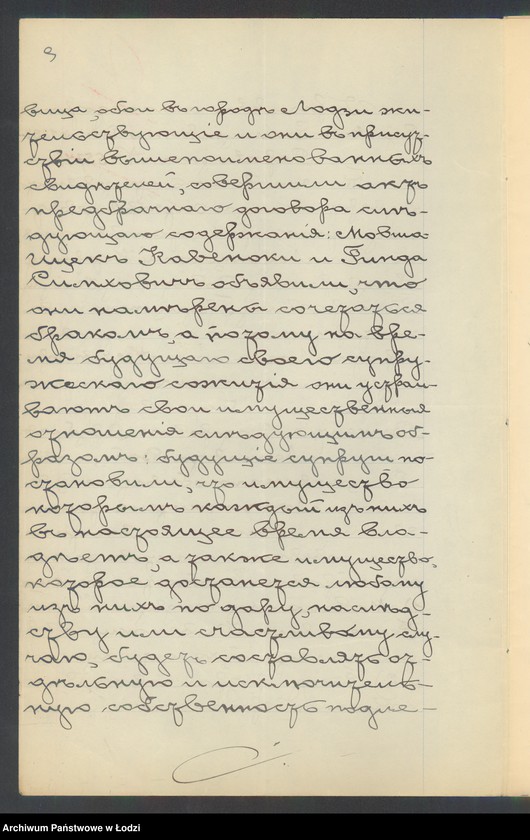 вица, обои въ городѣ Лодзи жи-
тельствующіе и они въ присут-
ствіи вышепоименованныхъ
свидѣтелей, совершили актъ
предбрачнаго договора слѣ-
дующаго содержанія: Мовша
Ицекъ и Финда
Симховичъ объявили, что
они намѣрены сочетаться
бракомъ, а потому на вре-
мя будущаго своего супру-
жескаго сожитія они устраи-
ваютъ свои имущественныя
отношенія слѣдующимъ об-
разомъ: будущіе супруги по-
становили, что имущество
которымъ каждый изъ нихъ
въ настоящее время вла-
дѣетъ, а также имущество,
которое достанется любому
изъ нихъ по дару, наслѣд-
ству или счастливому слу-
чаю, будетъ составлять от-
дѣльную и исключитель-
ную собственность подле-
Archiwum Państwowe w Łodzi